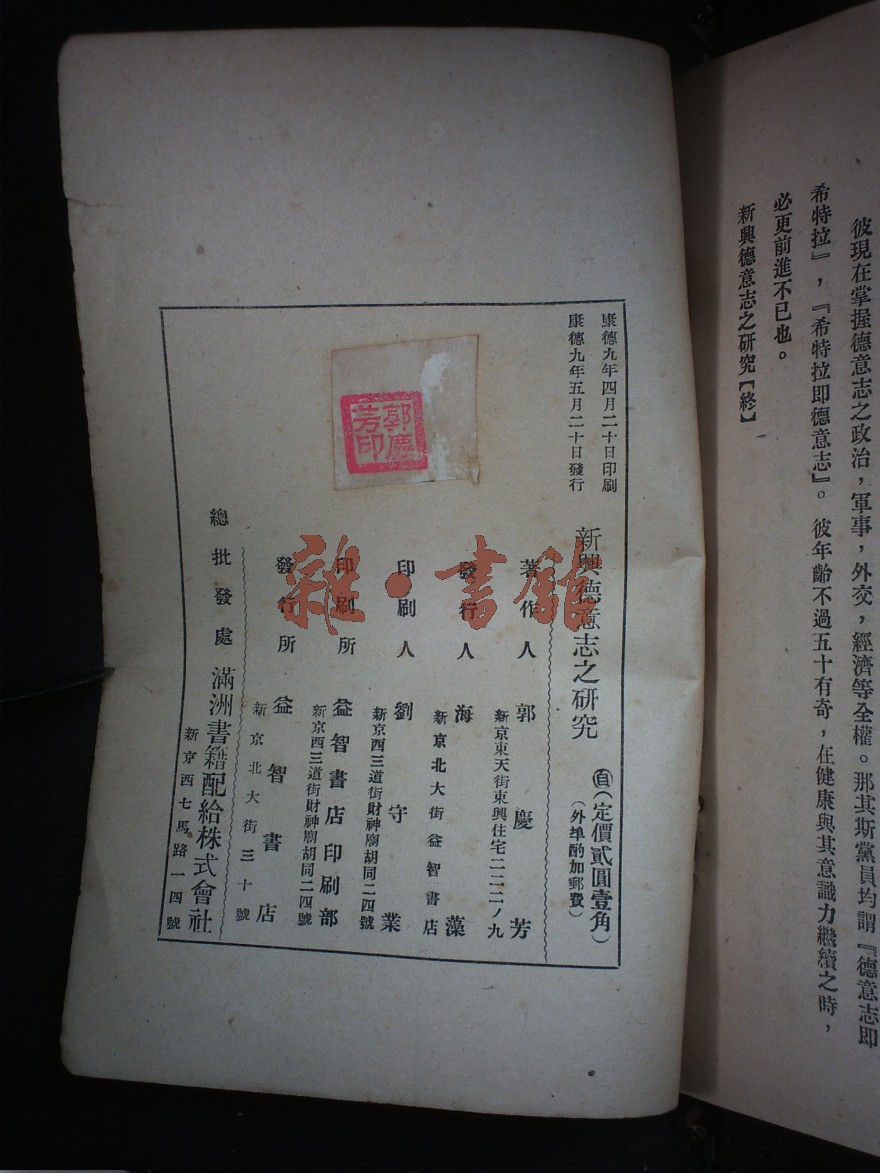 彼現在掌握德意志之政治，軍事，外交，經濟等全權。那其斯黨員均謂『德意志即
希特拉』，『希特拉即德意志』。彼年齡不過五十有奇，在健康與其意識力繼續之時，
必更前進不已也。
新興德意志之研究【終】
康德九年四月二十日印刷
康德九年五月二十日發行
郭慶芳印
新興德意志之研究
㊀（定價貳圓壹角）
（外埠酌加郵費）
著作人 郭慶芳
新京東天街東興住宅二二二ノ九
發行人 海藻
新京北大街益智書店
印刷人 劉守業
新京西三道街財神廟胡同二四號
印刷所 益智書店印刷部
新京西三道街財神廟胡同二四號
發行所 益智書店
新京北大街三十號
總批發處 滿洲書籍配給株式會社
新京西七馬路一四號
雜·書館